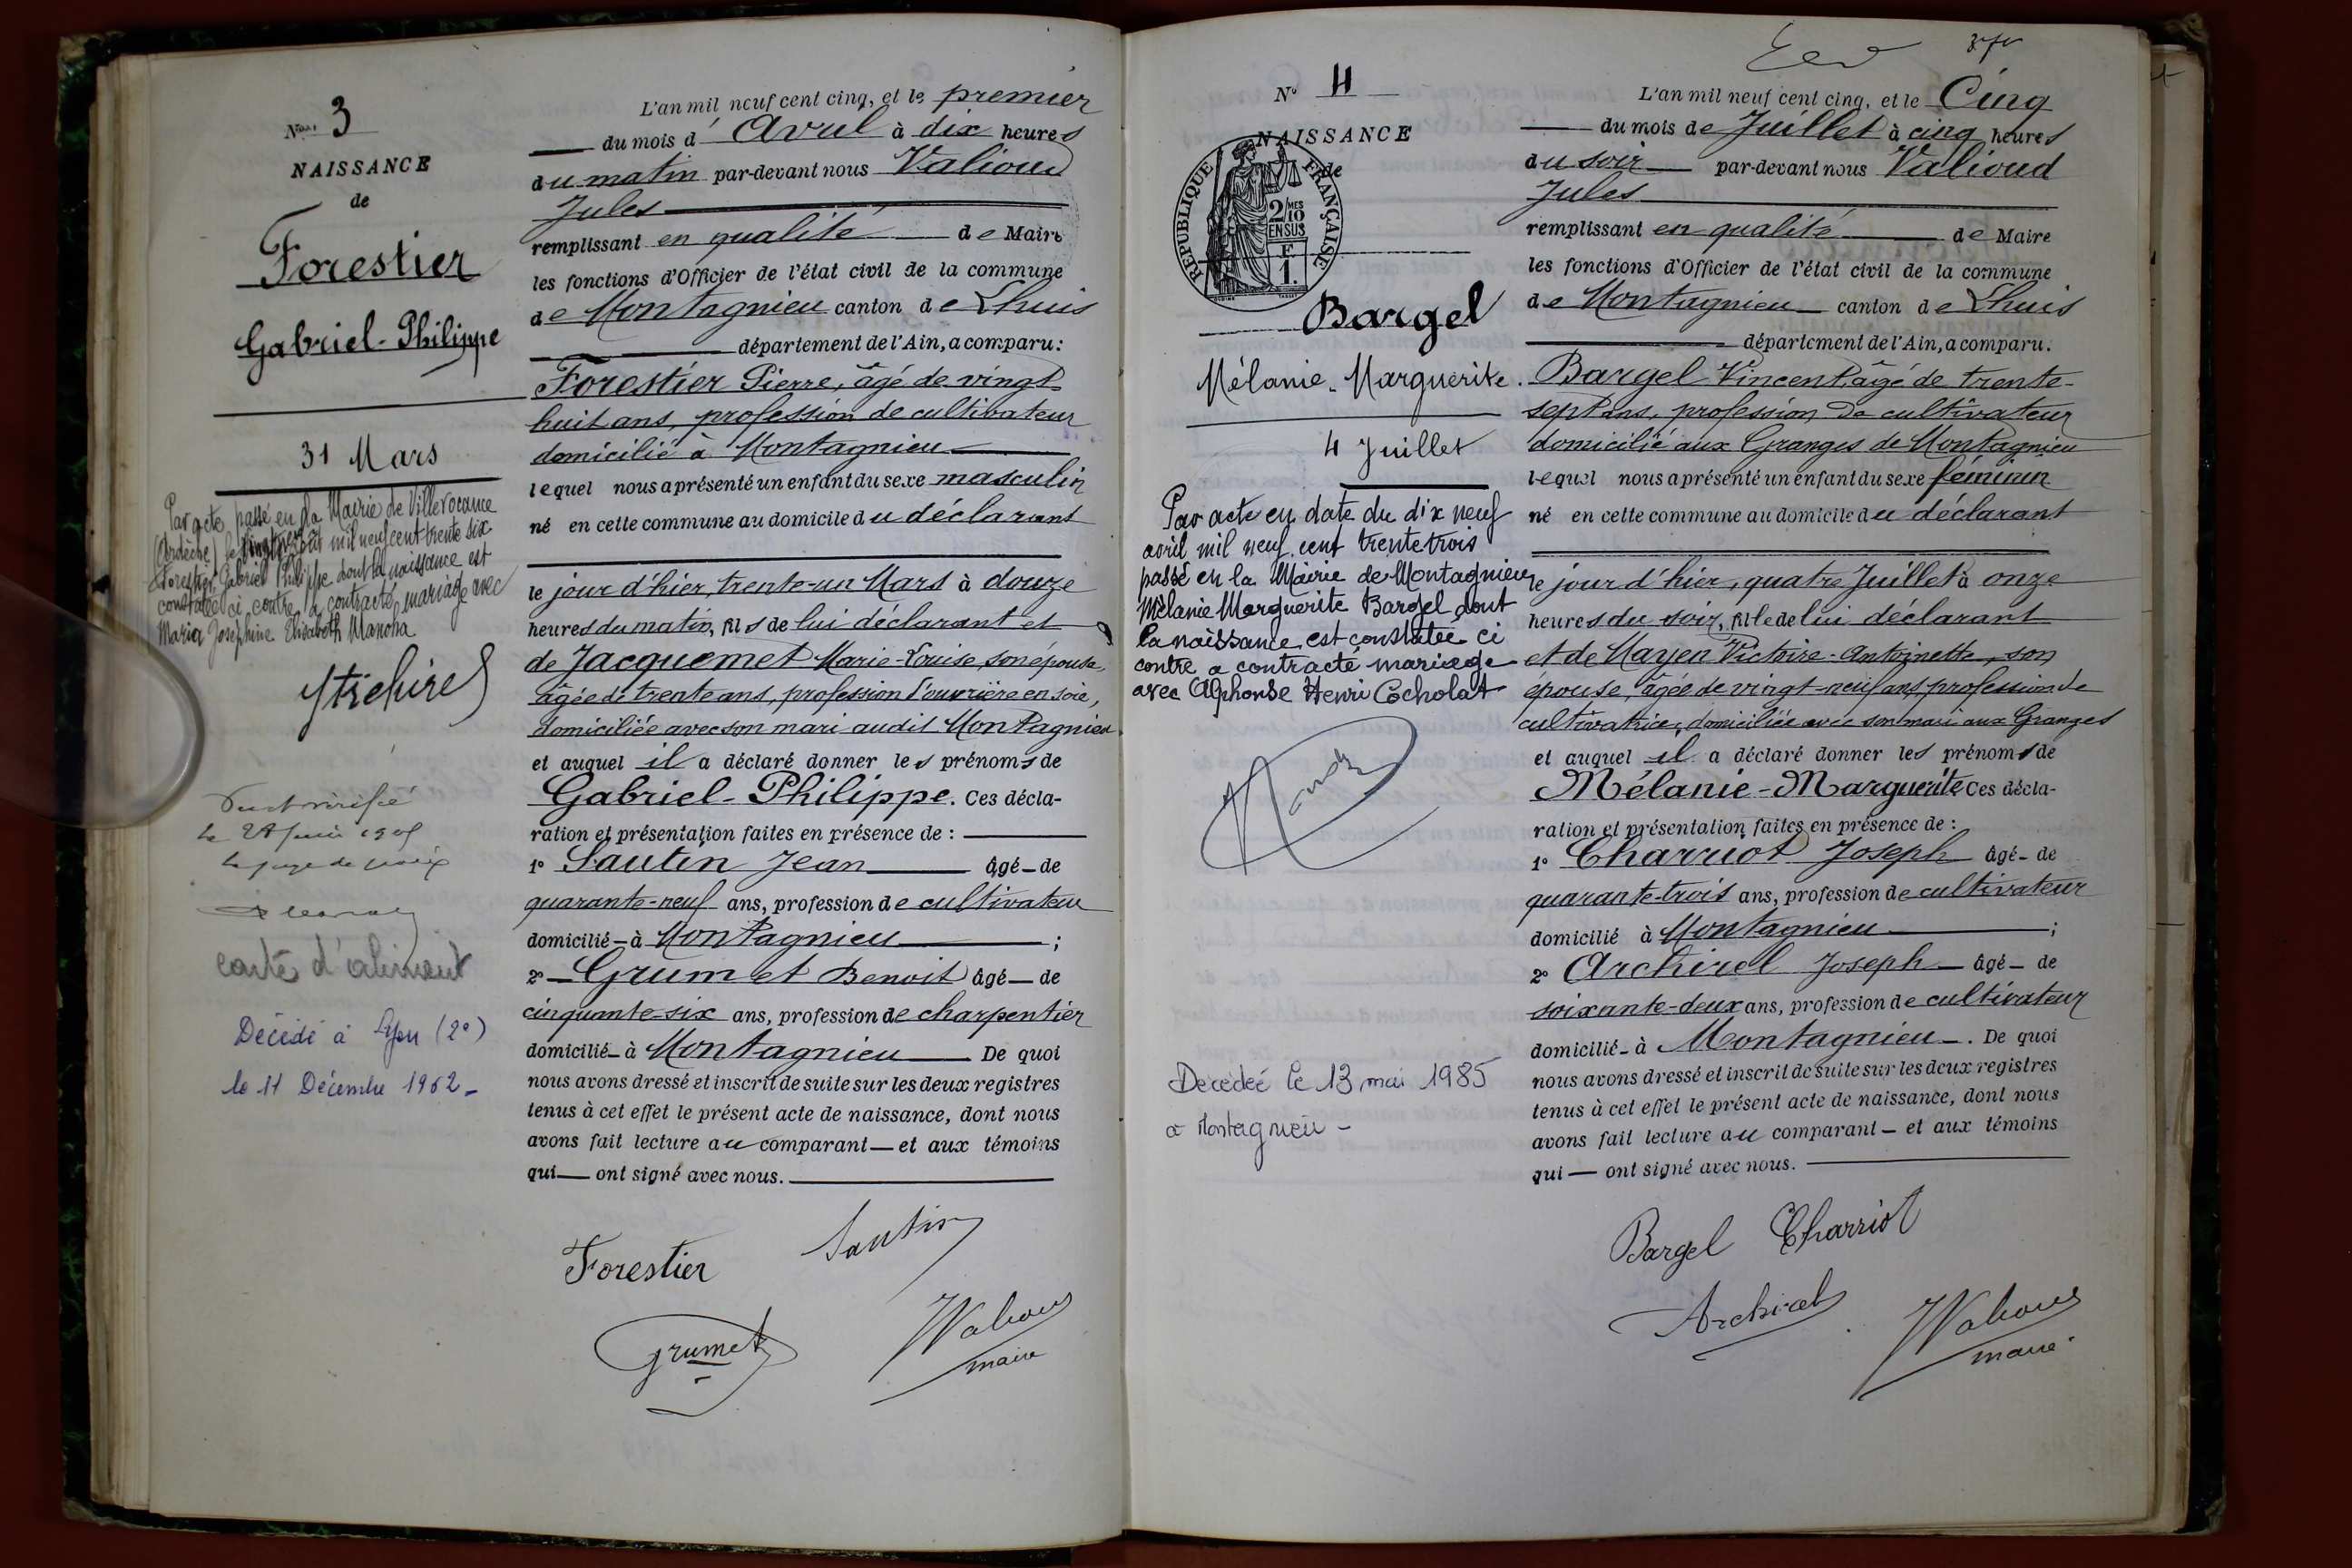 N° 3
NAISSANCE
de
Forestier
Gabriel-Philippe
31 Mars
Par acte passé en la Mairie de Villevocance
(Ardèche) le vingt neuf mil neuf cent trente six
Forestier Gabriel Philippe dont la naissance est
constatée ci contre a contracté mariage avec
Maria Josephine Elisabeth Manoha
le juge de paix
carte d'aliment
Décédé à Lyon (2e)
le 11 Décembre 1962-
L'an mil neuf cent cinq, et le premier
du mois d'Avril à dix heures
du matin par-devant nous Valioud
Jules
remplissant en qualité de Maire
les fonctions d'Officier de l'état civil de la commune
de Montagnieu canton de Lhuis
département de l'Ain, a comparu:
Forestier Pierre, âgé de vingt-
huit ans, profession de cultivateur
domicilié à Montagnieu
lequel nous a présenté un enfant du sexe masculin
né en cette commune au domicile du déclarant
le jour d'hier, trente-un Mars à douze
heures du matin, fils de lui déclarant et
de Jacquemet Marie-Louise, son épouse,
âgée de trente ans, profession d'ouvrière en soie,
domiciliée avec son mari audit Montagnieu
et auquel il a déclaré donner les prénoms de
Gabriel-Philippe. Ces décla-
ration et présentation faites en présence de :
1° Sautin Jean âgé de
quarante-neuf ans, profession de cultivateur
domicilié à Montagnieu ;
2° Grumet Benoit âgé de
cinquante-six ans, profession de charpentier
domicilié à Montagnieu De quoi
nous avons dressé et inscrit de suite sur les deux registres
tenus à cet effet le présent acte de naissance, dont nous
avons fait lecture au comparant et aux témoins
qui ont signé avec nous.
Forestier Sautin
Grumet JValioud
maire
N° 4
NAISSANCE
de
RÉPUBLIQUE FRANÇAISE
2/10 MES
EN SUS
F.
1.
Bargel
Mélanie-Marguerite.
4 Juillet
Par acte en date du dix neuf
avril mil neuf cent trente trois
passé en la Mairie de Montagnieu
Mélanie Marguerite Bargel dont
la naissance est constatée ci
contre a contracté mariage
avec Alphonse Henri Cocholat
Decedeé le 13 mai 1985
à Montagnieu -
L'an mil neuf cent cinq, et le Cinq
du mois de Juillet à cinq heures
du soir par-devant nous Valioud
Jules
remplissant en qualité de Maire
les fonctions d'Officier de l'état civil de la commune
de Montagnieu canton de Lhuis
département de l'Ain, a comparu.
Bargel Vincent, âgé de trente-
sept ans, profession de cultivateur
domicilié aux Granges de Montagnieu
lequel nous a présenté un enfant du sexe féminin
né en cette commune au domicile du déclarant
le jour d'hier, quatre Juillet à onze
heures du soir, fille de lui déclarant
et de Mayen Victoire-Antoinette, son
épouse, âgée de vingt-neuf ans, profession de
cultivatrice, domiciliée avec son mari aux Granges
et auquel il a déclaré donner les prénoms de
Mélanie-Marguerite Ces décla-
ration et présentation faites en présence de :
1° Charriot Joseph âgé de
quarante-trois ans, profession de cultivateur
domicilié à Montagnieu ;
2° Archirel Joseph âgé de
soixante-deux ans, profession de cultivateur
domicilié à Montagnieu. De quoi
nous avons dressé et inscrit de suite sur les deux registres
tenus à cet effet le présent acte de naissance, dont nous
avons fait lecture au comparant et aux témoins
qui ont signé avec nous.
Bargel Charriot
Archirel JValioud
maire